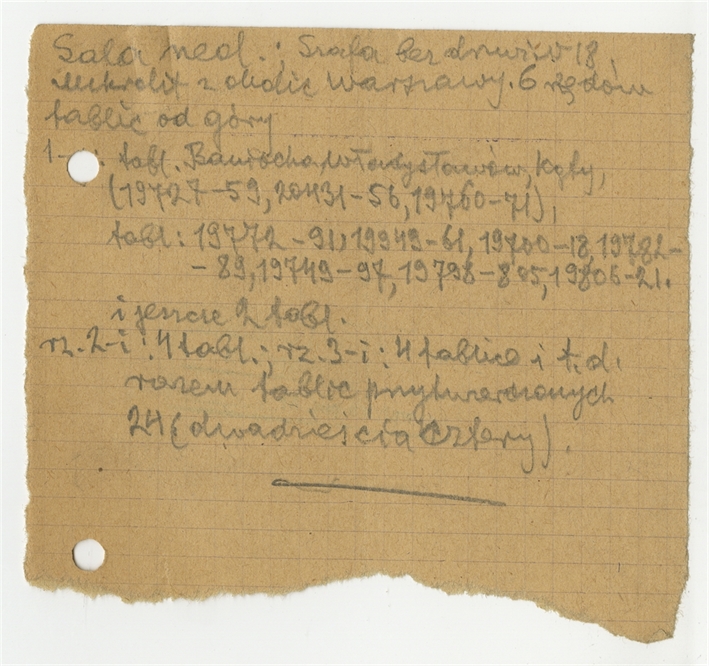 Sala neol.; Szafa bez drzwi 18,
mikrolit z okolic Warszawy. 6 rzędów
tablic od góry
1- tabl. Baniocha, Władysławów, Kąty,
(19727-59, 20431-56, 19760-71),
tabl: 19772-91, 19949-61, 19700-18, 19782-
-89, 19749-97, 19798-805, 19806-21.
i jeszcze 2 tabl.
rz. 2-i: 4 tabl.; rz. 3-i: 4 tablice i t.d.
razem tablic przytwierdzonych
24 (dwadzieścia cztery).